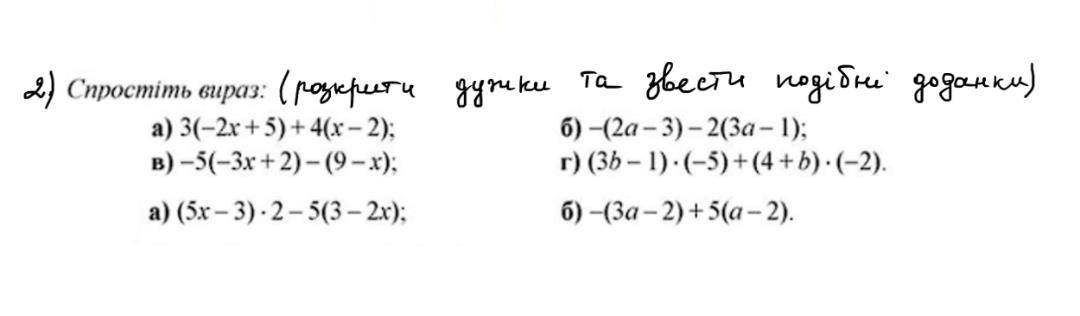 2) Спростіть вираз: (розкрити дужки та звести подібні доданки)
а) 3(−2x + 5) + 4(x − 2); б) −(2a − 3) − 2(3a − 1);
в) −5(−3x + 2) − (9 − x); г) (3b − 1) · (−5) + (4 + b) · (−2).
а) (5x − 3) · 2 − 5(3 − 2x); б) −(3a − 2) + 5(a − 2).